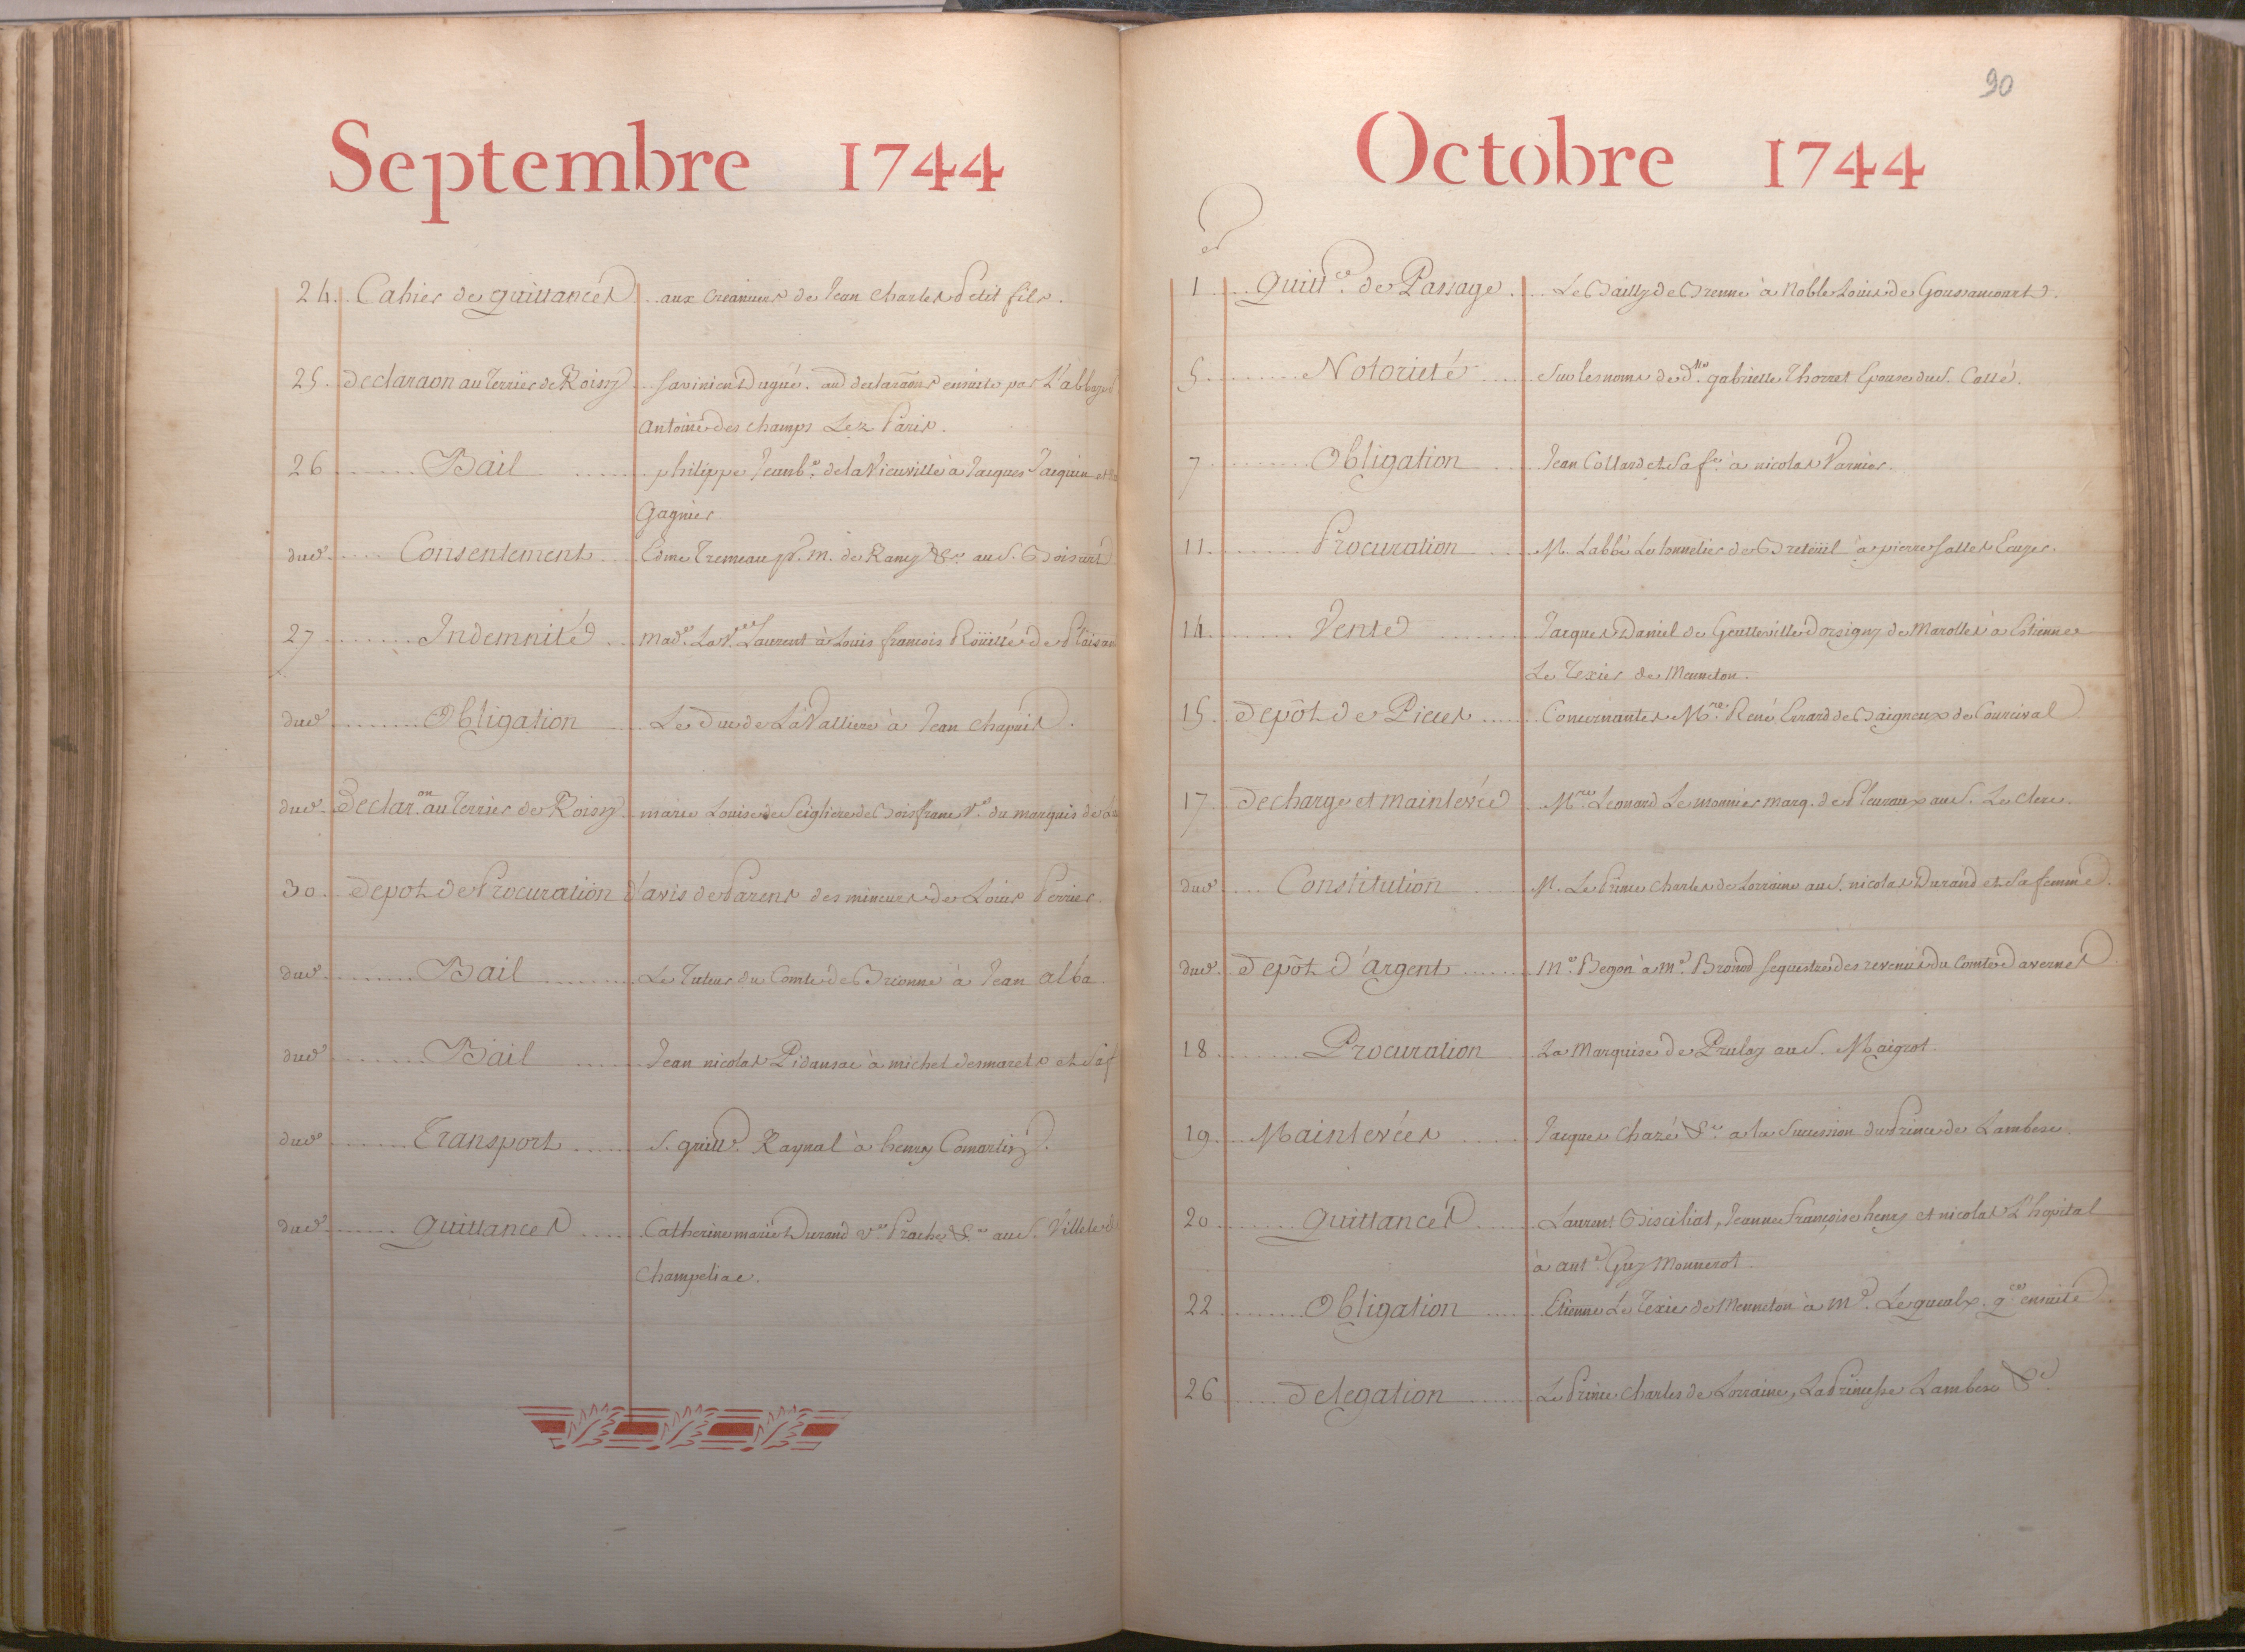 Septembre 1744
24. Cahier de quittances aux Creanciers de Jean Charles Petit fils.
25. declaraon au Terrier de Roissy Savinien Dugué. aud declaraons ensuite par L'abbaye
Antoine des champs Lez Paris.
26 Bail philippe Jeanb.e de la Vieuville à Jacques Jacquin et
Gagnier
dud. Consentement Edme Tremeau pr. m. de Rancy &c. au S. Boisard
27 Indemnité mad.e La V.e Laurent à Louis francois Roüillé de Plaisan
dud Obligation Le Duc de La Valliere à Jean Chapuis.
dud. Declar.on au Terrier de Roissy. marie Louise de Seigliere de Boisfranc V.e du marquis de
30. Depot de Procuration d'avis de Parens des mineurs de Louis Perrier.
dud. Bail Le Tuteur du Comte de Brionne à Jean alba.
dud Bail Jean nicolas Pidansac à michel desmarets et Sa f
dud Transport S. guill. Raynal à henry Comartin.
dud quittances Catherine marie Durand V.e Prache &c. au S. Villete
Champeliac.
90
Octobre 1744
er
1 Quitt.ce de Passage. Le Bailly de Brenne à Noble Louis de Goussancourt.
5 Notorieté Sur les noms de d.lle gabrielle Thorret Epouse du S. Collé.
7 Obligation Jean Collard et Sa f.e à nicolas Varnier.
11. Procuration M. Labbé Le tonnelier de Breteüil à pierre Salles Ecuyer.
14 Vente Jacques Daniel de Gentteville Dorsigny de Marolles à Estienne
Le Texier de Menneton.
15. depôt de Pieces Concernantes M.re René Errard de Baigneux de Courcival
17. decharge et mainlevée M.re Leonard Le monnier marq. de Pleuraux au S. Le Clerc.
dud Constitution M. Le Prince Charles de Lorraine au S. nicolas Durand et Sa femme.
dud. depôt d'argent M.e Begon à M.e Bronod sequestre des revenus du Comte davernes.
18 Procuration La Marquise de Prulay au S. Maigrot.
19. Mainlevées Jacques Chazé &c. a la Succession du Prince de Lambesc.
20 quittances Laurent Bisciliat, Jeanne Françoise henry et nicolas L'hopital
à ant.e Guy Monnerot.
22 Obligation Etienne Le Texier de Menneton à M.e Lequeulx. q.ce ensuite
26 delegation Le Prince Charles de Lorraine, La Princesse Lambesc &c.